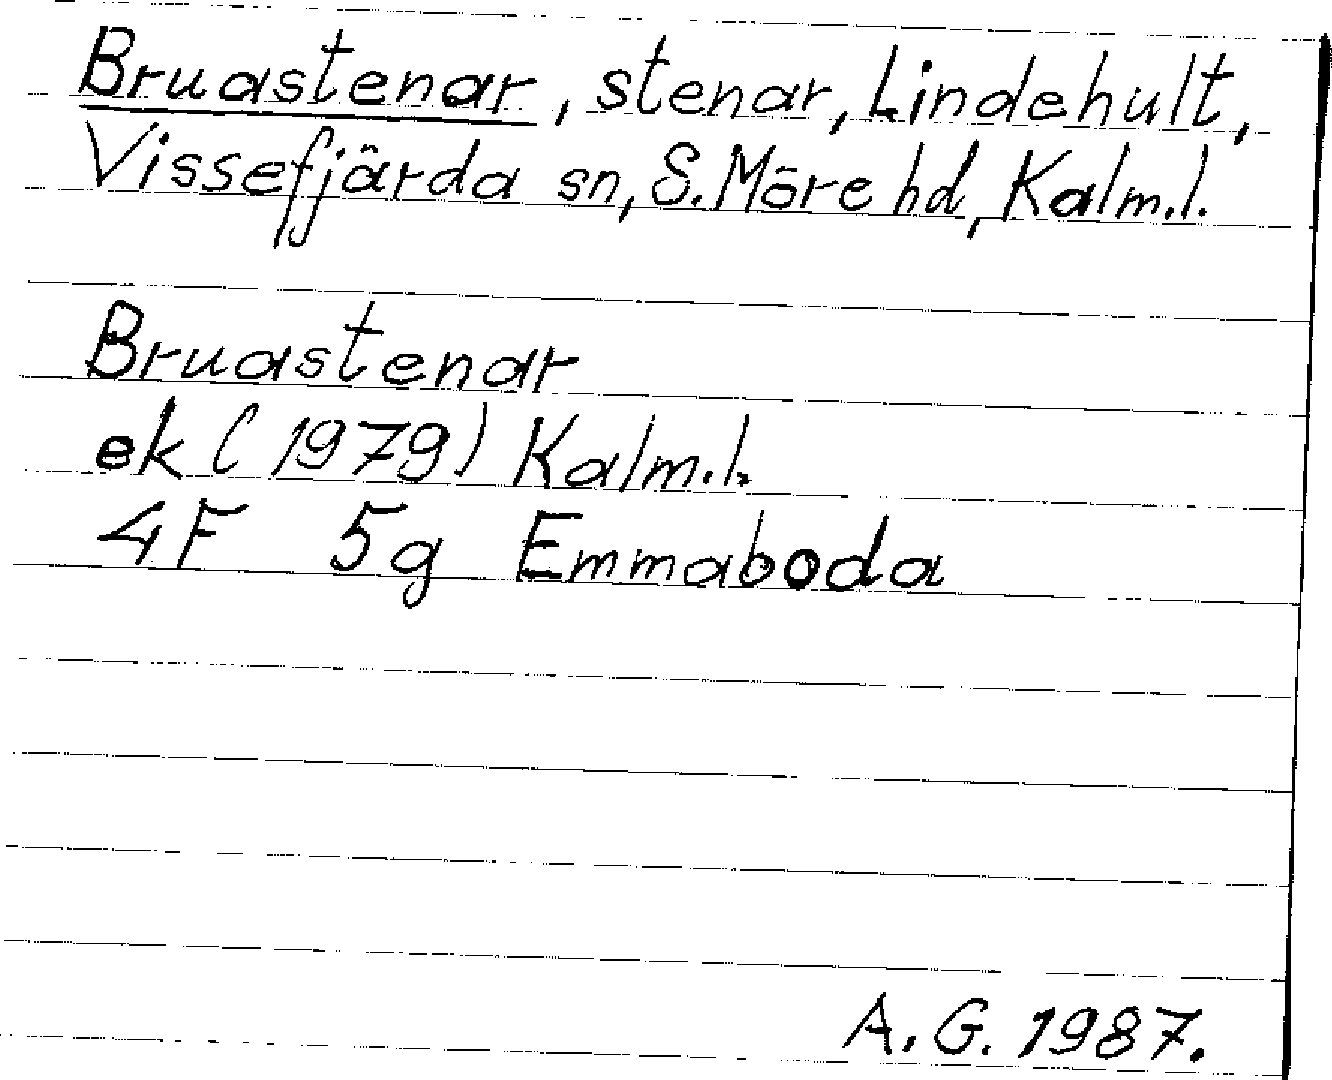 Bruastenar, stenar, Lindehult,
Vissefjärda sn, S. Möre hd, Kalm.l.
Bruastenar
ek (1979) Kalm.l.
4F 5g Emmaboda
A.G. 1987.